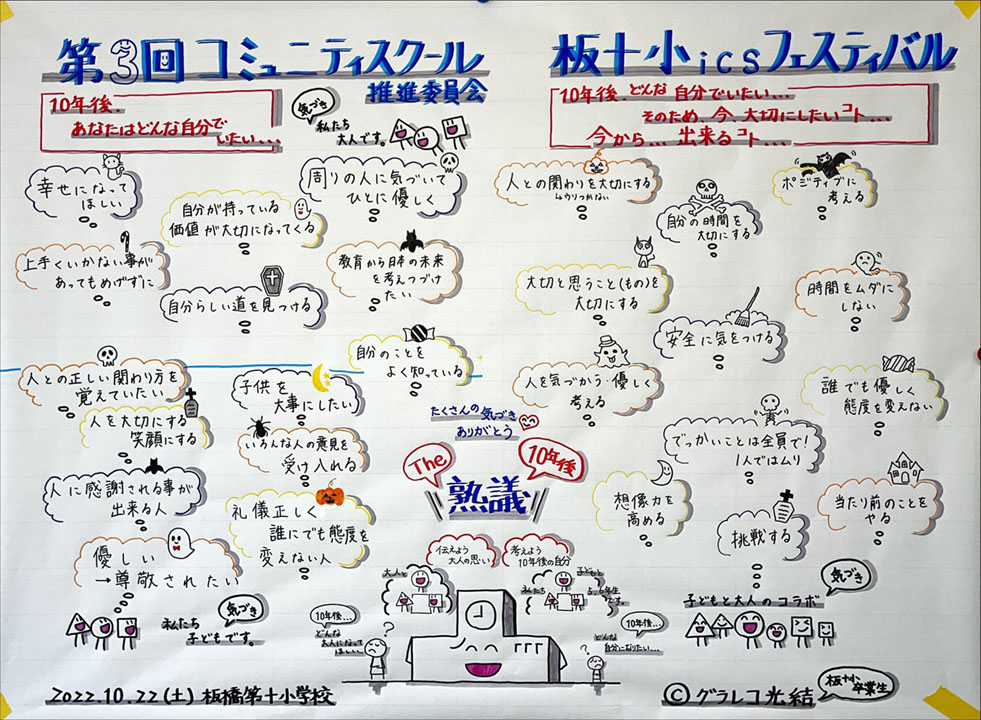 第3回 コミュニティスクール
推進委員会
板十小icsフェスティバル
10年後、
あなたはどんな自分で
いたい...
気づき
私たち
大人です。
10年後、どんな自分でいたい...
そのため、今、大切にしたいコト...
今から...出来るコト...
幸せになって
ほしい
自分が持っている
価値が大切になってくる
周りの人に気づいて
ひとに優しく
上手くいかない事が
あってもめげずに
自分らしい道を見つける
教育から日本の未来
を考えつづけ
たい
自分のことを
よく知っている
人との正しい関わり方を
覚えていたい
子供を
大事にしたい
人を大切にする
笑顔にする
いろんな人の意見を
受け入れる
人に感謝される事が
出来る人
礼儀正しく
誰にでも態度を
変えない人
優しい
→尊敬されたい
気づき
私たち
子どもです。
人との関わりを大切にする
自分の時間を
大切にする
ポジティブに
考える
大切と思うこと(もの)を
大切にする
時間をムダに
しない
安全に気をつける
人を気づかう・優しく
考える
誰でも優しく
態度を変えない
でっかいことは全員で!
1人ではムリ
想像力を
高める
挑戦する
当たり前のことを
やる
気づき
子どもと大人のコラボ
たくさんの気づき
ありがとう
The
10年後
熟議
伝えよう
大人の思い
考えよう
10年後の自分
大人と
子どもと
私たち
5,6年生
です。
10年後...
どんな
大人になって
ほしい...
10年後...
どんな
自分になりたい...
2022.10.22(土) 板橋第十小学校
©グラレコ光結
板十小
卒業生